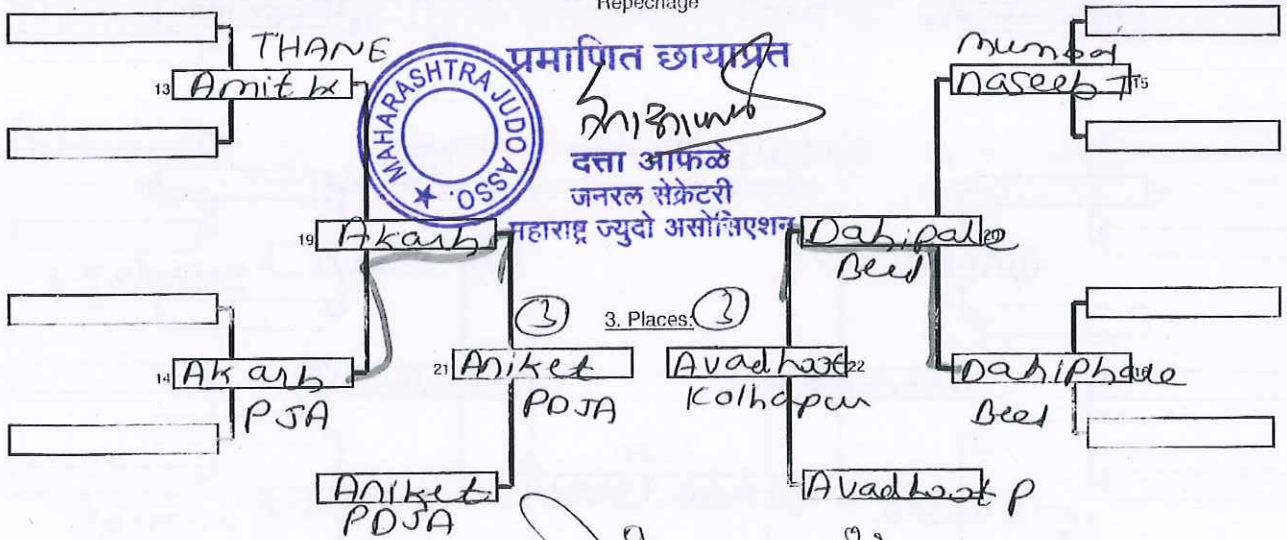 Repechage
THANE
13 Amit
प्रमाणित छायाप्रत
MAHARASHTRA JUDO ASSO. ★
दत्ता आफळे
जनरल सेक्रेटरी
महाराष्ट्र ज्युदो असोसिएशन
Naseeb 15
19 Akash
Dahipale 20
Beed
3 3. Places: 3
14 Akash
PJA
21 Aniket
PDJA
Avadhoot 22
Kolhapur
Dahiphale
Beed
Aniket
PDJA
Avadhoot P